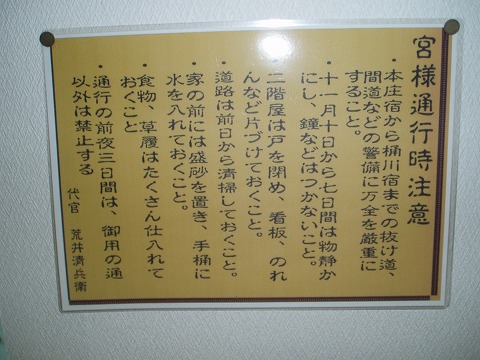 宮様通行時注意
・本庄宿から桶川宿までの抜け道、
間道などの警備に万全を厳重に
すること。
・十一月十日から七日間は物静か
にし、鐘などはつかないこと。
・二階屋は戸を閉め、看板、のれ
んなど片づけておくこと。
道路は前日から清掃しておくこと。
・家の前には盛砂を置き、手桶に
水を入れておくこと。
・食物、草履はたくさん仕入れて
おくこと
・通行の前夜三日間は、御用の通
以外は禁止する
代官 荒井清兵衛